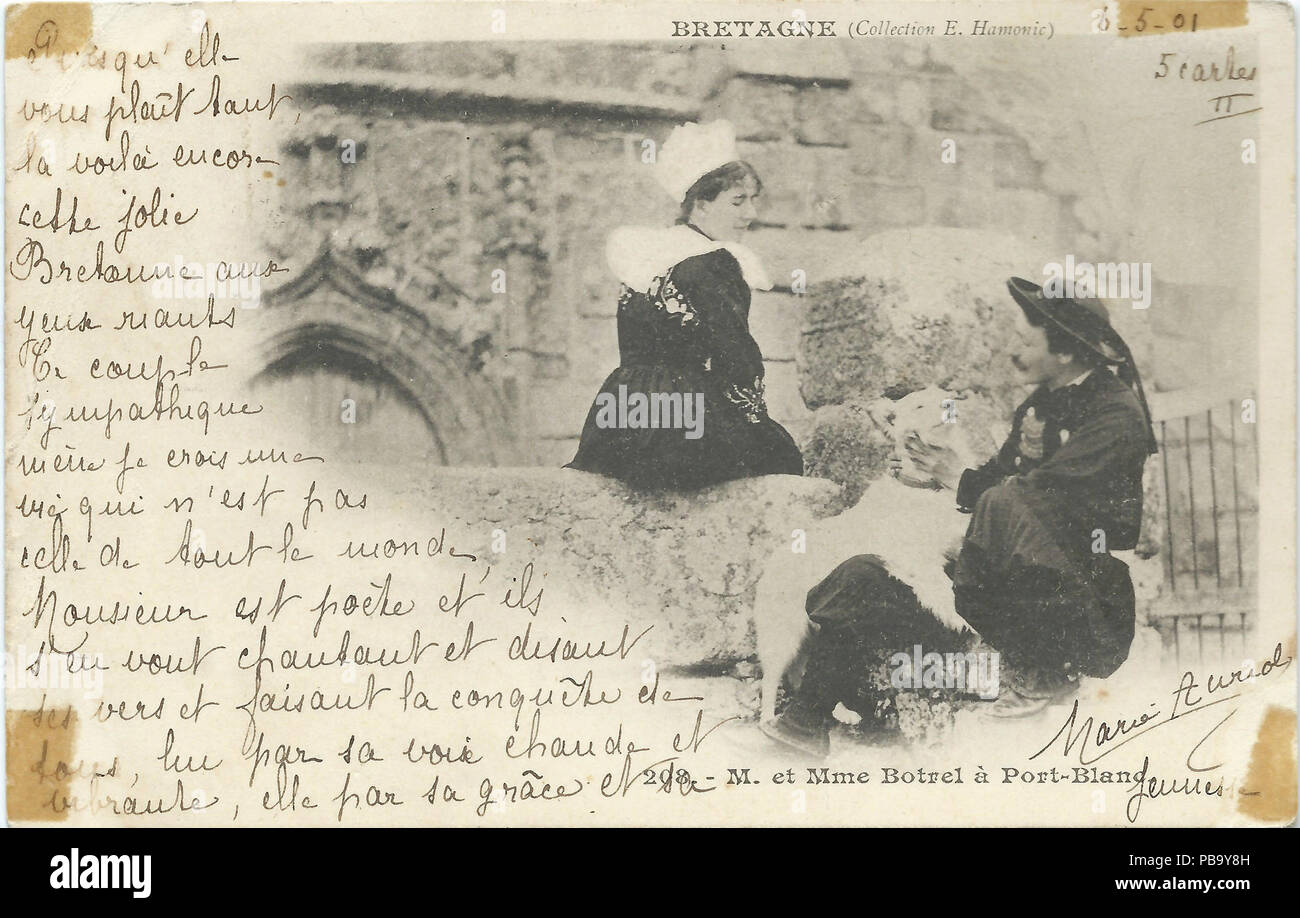 BRETAGNE (Collection E. Hamonic)
6-5-01
5 cartes
II
Puisqu'elle
vous plaît tant,
la voilà encore
cette jolie
Bretonne aux
yeux riants
Ce couple
sympathique
mène je crois une
vie qui n'est pas
celle de tout le monde
Monsieur est poète et ils
s'en vont chantant et disant
ses vers et faisant la conquête de
tous, lui par sa voix chaude et
vibrante, elle par sa grâce et sa
jeunesse
Marie Auriol
208. - M. et Mme Botrel à Port-Blanc
alamy
Image ID: PB9Y8H
www.alamy.com